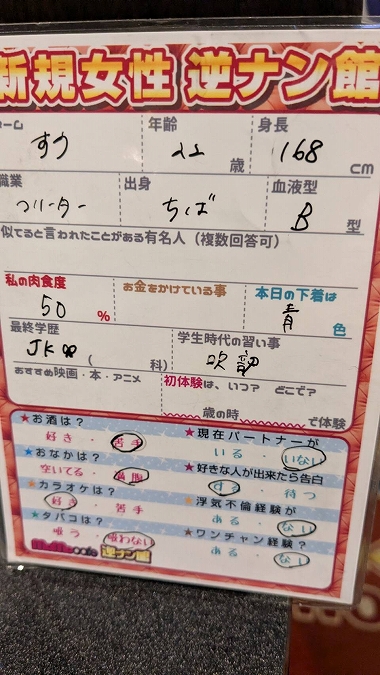 新規女性 逆ナン館
ーム 年齢 身長
すう 22 歳 168 cm
職業 出身 血液型
フリーター ちば B 型
似てると言われたことがある有名人(複数回答可)
私の肉食度 お金をかけている事 本日の下着は
50 % 青 色
最終学歴 学生時代の習い事
JK ( 科) 吹部
おすすめ映画・本・アニメ 初体験は、いつ? どこで?
歳の時 で体験
★お酒は? ★現在パートナーが
好き・苦手 いる・いない
★おなかは? ★好きな人が出来たら告白
空いてる・満腹 する・待つ
★カラオケは? ★浮気不倫経験が
好き・苦手 ある・ない
★タバコは? ★ワンチャン経験?
吸う・吸わない ある・ない
cafe 逆ナン館